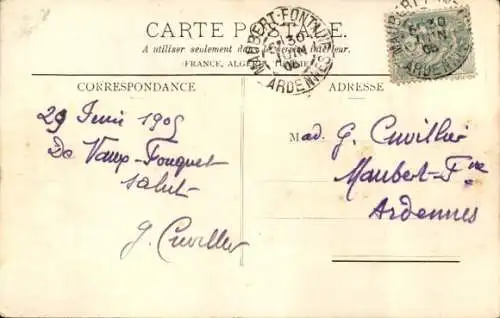 CARTE POSTALE.
A utiliser seulement dans le service intérieur.
(FRANCE, ALGÉRIE, TUNISIE)
MAUBERT-FONTAINE
30
JUIN
ARDENNES
MAUBERT-FONTAINE
30
JUIN
ARDENNES
CORRESPONDANCE
29 Juin 1905
De Vaux-Fouquet
salut
G. Cuvillier
ADRESSE
Mad. G. Cuvillier
Maubert-Fne
Ardennes